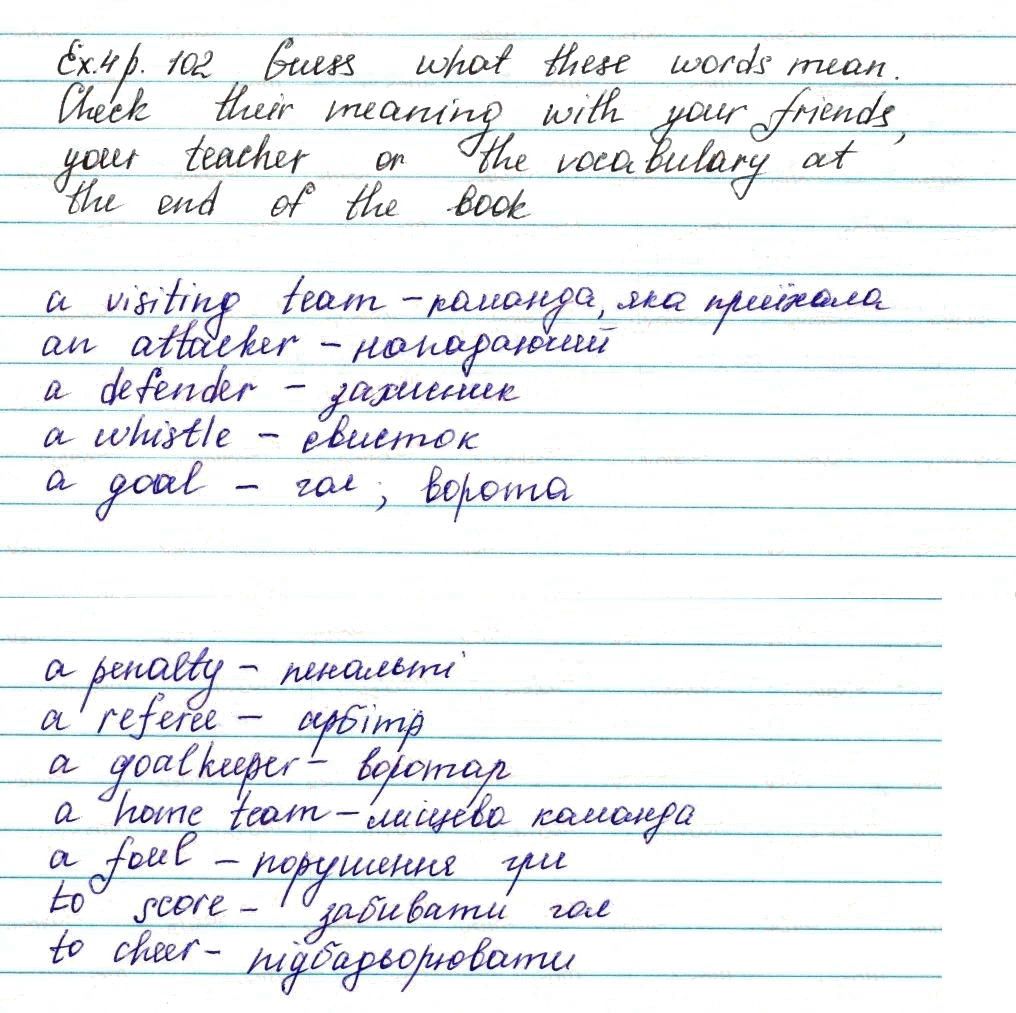 Ex.4 p. 102 Guess what these words mean.
Check their meaning with your friends,
your teacher or the vocabulary at
the end of the book
a visiting team – команда, яка приїхала
an attacker – нападаючий
a defender – захисник
a whistle – свисток
a goal – гол ; ворота
a penalty – пенальті
a referee – арбітр
a goalkeeper – воротар
a home team – місцева команда
a foul – порушення гри
to score – забивати гол
to cheer – підбадьорювати